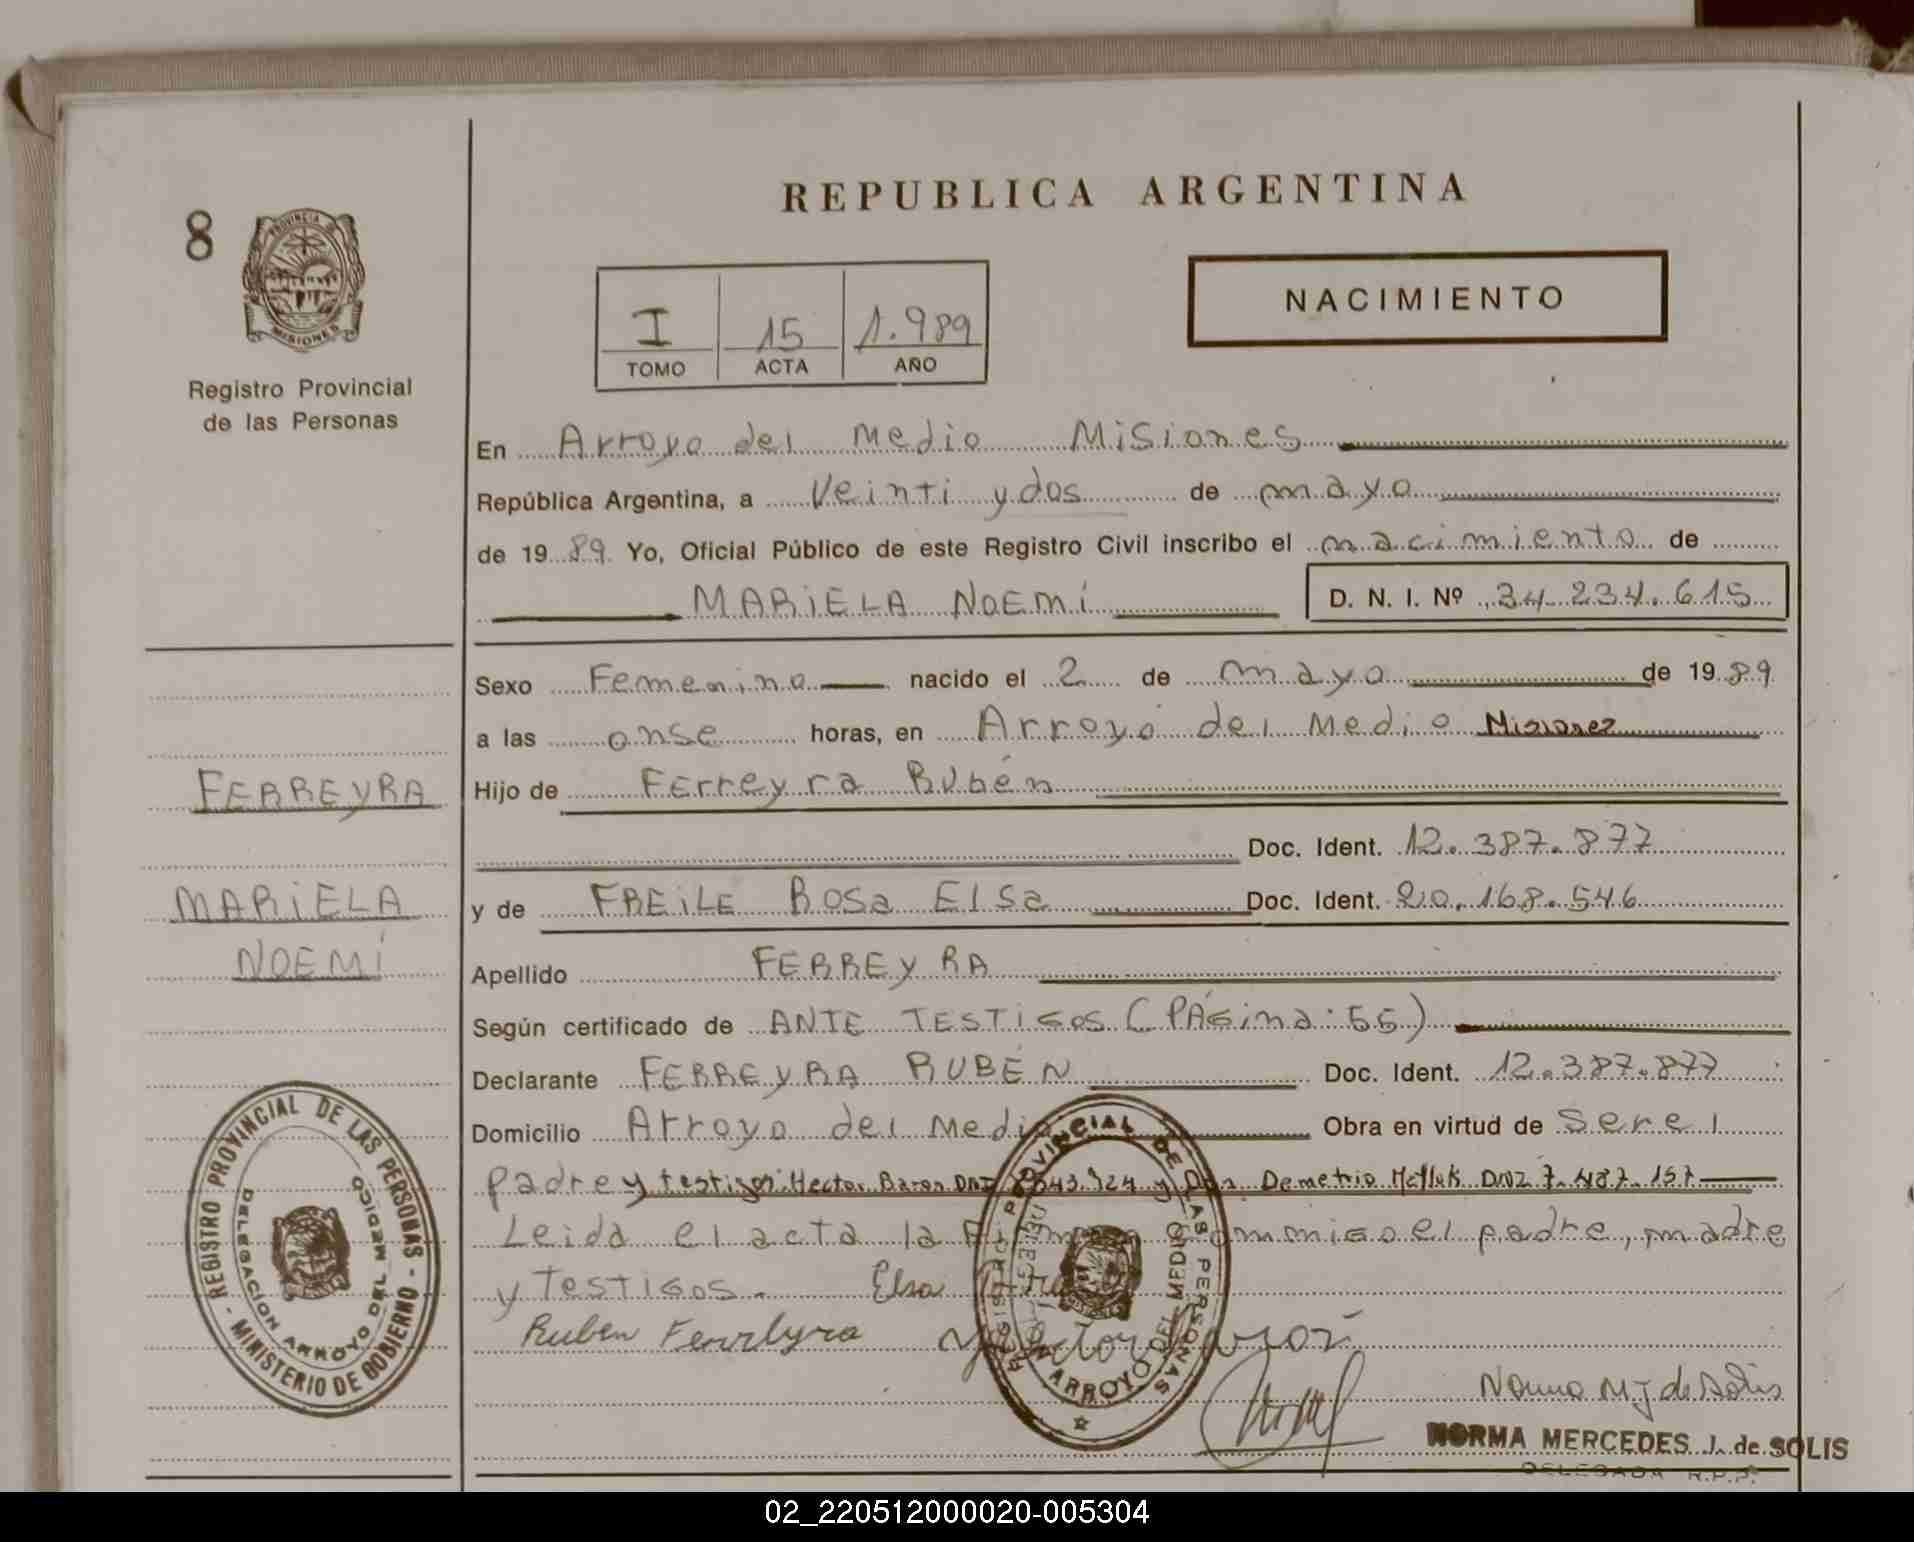 REPUBLICA ARGENTINA
8
PROVINCIA DE
MISIONES
Registro Provincial
de las Personas
NACIMIENTO
I 15 1.989
TOMO ACTA AÑO
En Arroyo del Medio Misiones
República Argentina, a Veinti y dos de mayo
de 1989. Yo, Oficial Público de este Registro Civil inscribo el nacimiento de
MARIELA NOEMÍ D. N. I. Nº 34.234.615
Sexo Femenino nacido el 2 de mayo de 1989
a las onse horas, en Arroyo del Medio Misiones
FERREYRA
Hijo de Ferreyra Rubén
Doc. Ident. 12.387.877
MARIELA
y de FREILE Rosa Elsa Doc. Ident. 20.168.546
NOEMÍ
Apellido FERREYRA
Según certificado de ANTE TESTIGOS (PÁGina: 55)
Declarante FERREYRA RUBÉN Doc. Ident. 12.387.877
Domicilio Arroyo del Medio Obra en virtud de Ser el
padre y testigos: Hector Baron DNI 43.924 y Don Demetrio DNI 7.487.157
Leida el acta la conmigo el padre, madre
y Testigos. Elsa
Ruben Ferreyra
Norma M J de Solis
NORMA MERCEDES J. de SOLIS
DELEGADA R.P.P.
REGISTRO PROVINCIAL DE LAS PERSONAS - MINISTERIO DE GOBIERNO -
DELEGACION ARROYO DEL MEDIO
REGISTRO PROVINCIAL DE LAS PERSONAS
ARROYO DEL MEDIO
02_220512000020-005304